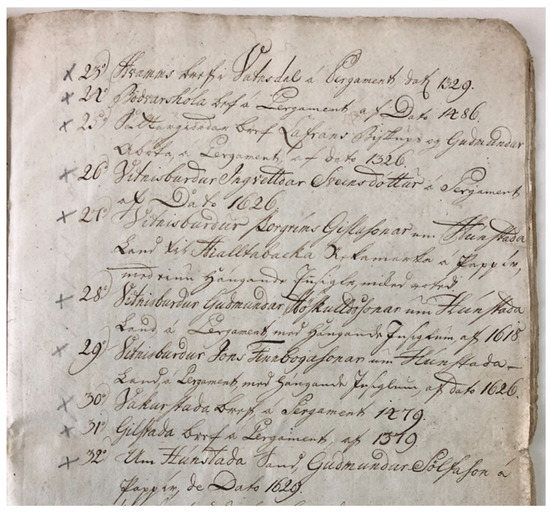 × 23° Hvamms bref i Vatnsdal á Pergament dat 1329.
× 24° Bödvarshola bref a Pergament af Dato 1486.
× 25° bref Lafrans Biskups og Gudmundar
Abóta, a Pergament, af dato 1326.
× 26° Vitnisburdur Ingvelldar Sveinsdottur á Pergament
af Dato 1626.
× 27° Vitnisburdur Þorgrims Gislasonar um Hunstada
Land til Hialltabacka a Pappir,
med einu Hángande Insigle,
+ 28° Vitnisburdur Gudmundar Höskulldssonar um Húnstada
Land, a Pergament med Hángande Insiglum af 1618
× 29° Vitnisburdur Jons Finnbogasonar um Hunstada-
Land á Pergament med Hangande Insiglum, af Dato 1626.
× 30° bref a Pergament 1479.
× 31° Gilstada bref a Pergament, af 1379
+ 32° Um Húnstada Land, Gudmundar Sölfason á
Pappir, de Dato 1629.